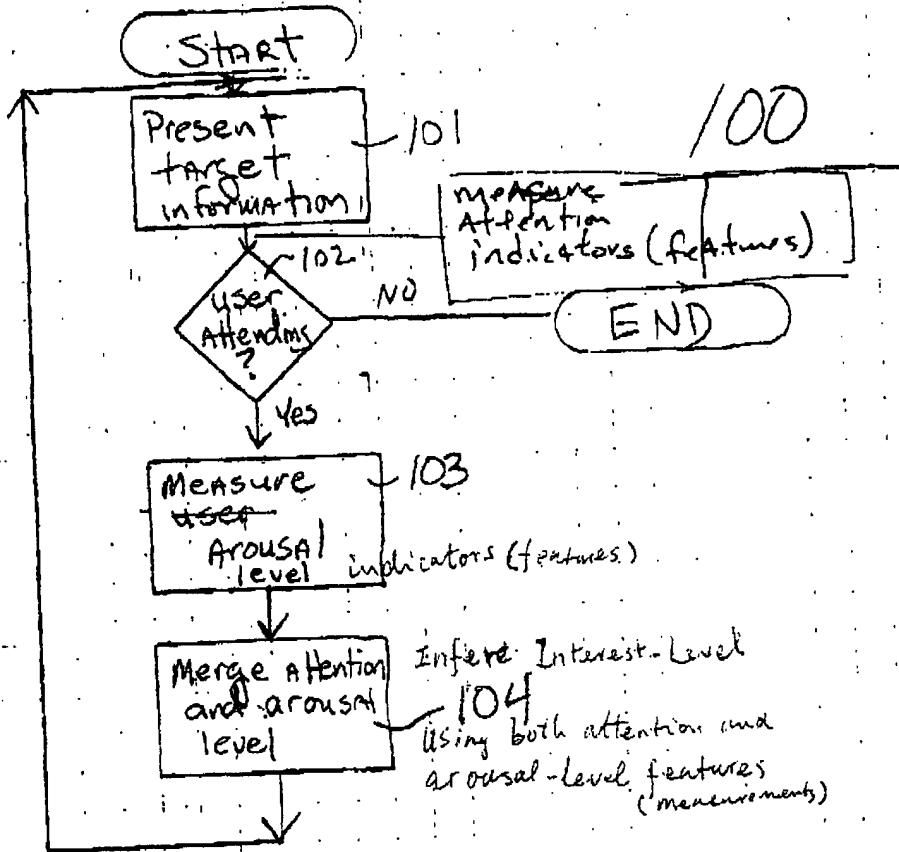 START
Present
target
information
101
100
measure
Attention
indicators (features)
102
user
Attending
?
NO
END
Yes
Measure
user
Arousal
level
103
indicators (features)
Merge Attention
and arousal
level
104
Infere Interest-Level
Using both attention and
arousal-level features
(measurements)